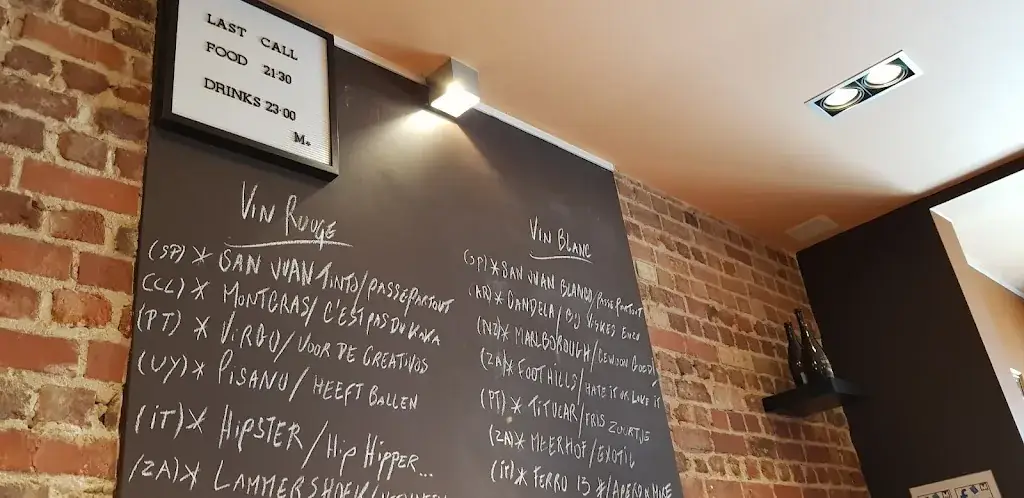 LAST CALL
FOOD 21:30
DRINKS 23:00
M+
VIN ROUGE
(SP) * SAN JUAN TINTO / PASSEPARTOUT
(CL) * MONTGRAS / C'EST PAS DU KAKA
(PT) * VIRGO / VOOR DE CREATIVOS
(UY) * PISANO / HEEFT BALLEN
(IT) * HIPSTER / HIP HIPPER...
(ZA) * LAMMERSHOEK /
VIN BLANC
(SP) * SAN JUAN BLANCO / PASSEPARTOUT
(AR) * CANDELA / BIJ VISKES ENZO
(NZ) * MARLBOROUGH / GEWOON GOED
(ZA) * FOOTHILLS / HATE IT OR LOVE IT
(PT) * TITULAR / FRIS ZUURTJE
(ZA) * MEERHOF / EXOTIC
(IT) * FERRO 13 * / APERO N MORE